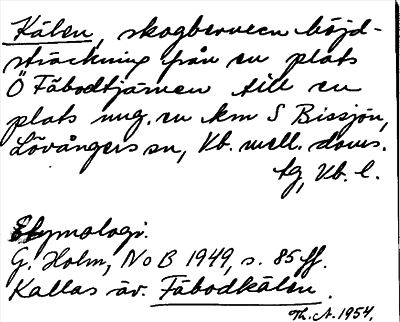 Kälen, skogbevuxen höjd-
sträckning från en plats
Ö Fäbodtjärnen till en
plats ung. en km S Bissjön,
Lövångers sn, Vb. mell. doms.
tg, Vb. l.
Etymologi.
G. Holm, NoB 1949, s. 85 ff.
Kallas äv. Fäbodkälen.
Th. A. 1954.